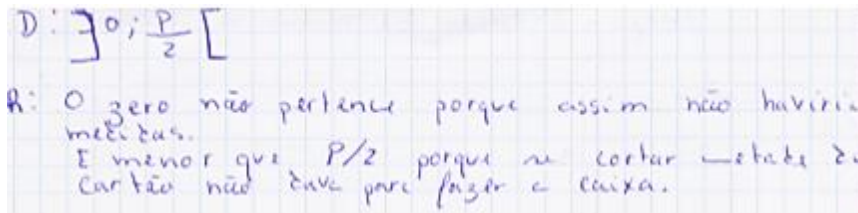 D: ]0; P/2[
R: O zero não pertence porque assim não haviria
medidas.
É menor que P/2 porque se cortar metade do
cartão não dava para fazer a caixa.